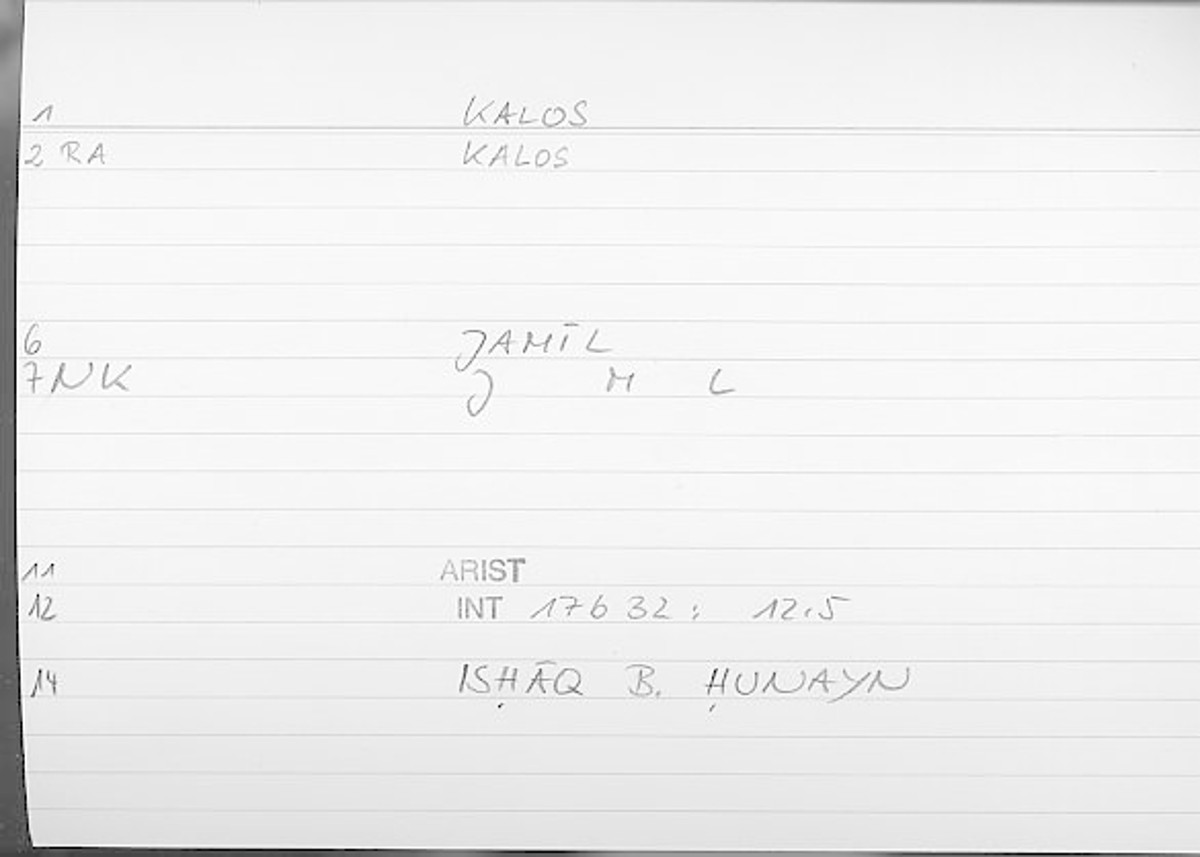 1 KALOS
2 RA KALOS
6 JAMĪL
7 NK J M L
11 ARIST
12 INT 176 32 : 12.5
14 ISḤĀQ B. ḤUNAYN